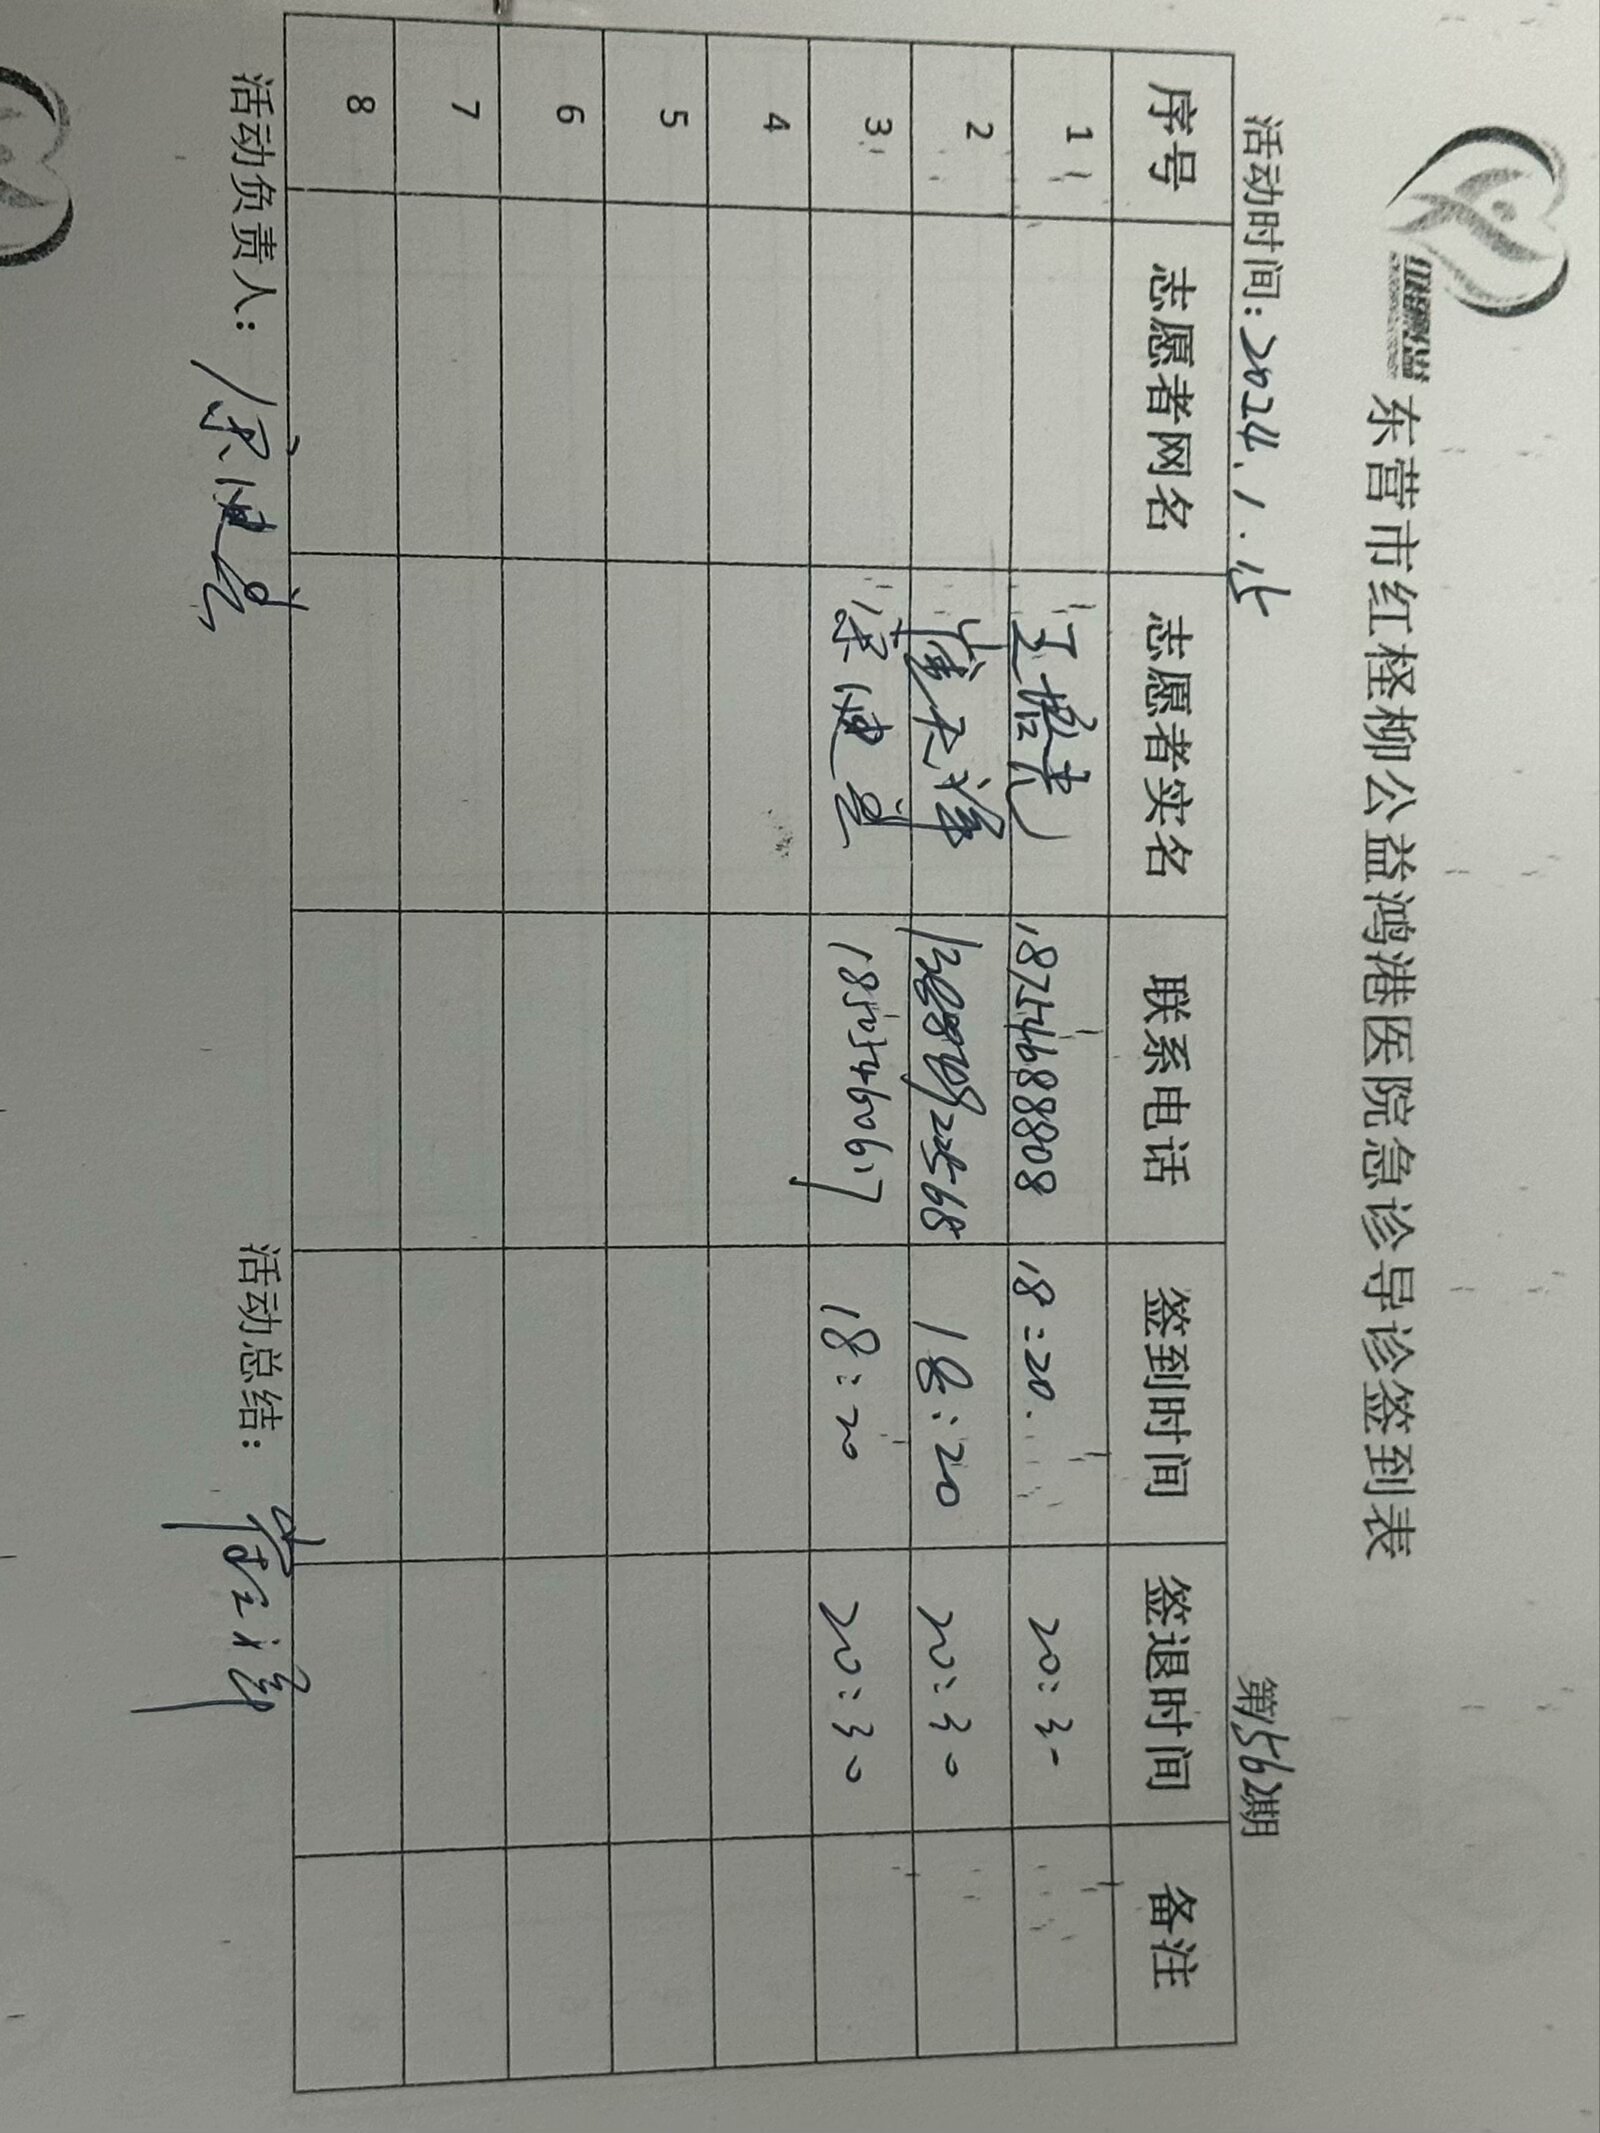 东营市红柽柳公益鸿港医院急诊导诊签到表
活动时间：2024.1.15 第1562期
序号 志愿者网名 志愿者实名 联系电话 签到时间 签退时间 备注
1 18754688808 18:20. 20:30
2 18:20 20:30
3 18505460617 18:20 20:30
4
5
6
7
8
活动负责人： 活动总结：